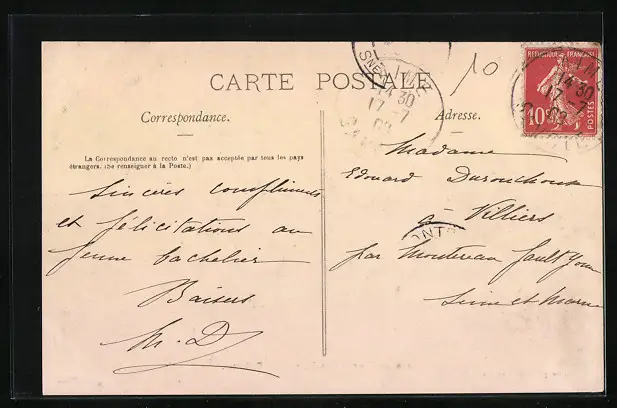 10
CARTE POSTALE
RÉPUBLIQUE FRANÇAISE
10 POSTES
14 30
17 - 7
09
14 30
17 - 7
09
Correspondance.
Adresse.
La Correspondance au recto n'est pas acceptée par tous les pays
étrangers. (Se renseigner à la Poste.)
Sincères compliments
et félicitations au
jeune bachelier
Baisers
M. D
Madame
Edouard
à Villiers
par Montereau fault Yonne
Seine et Marne